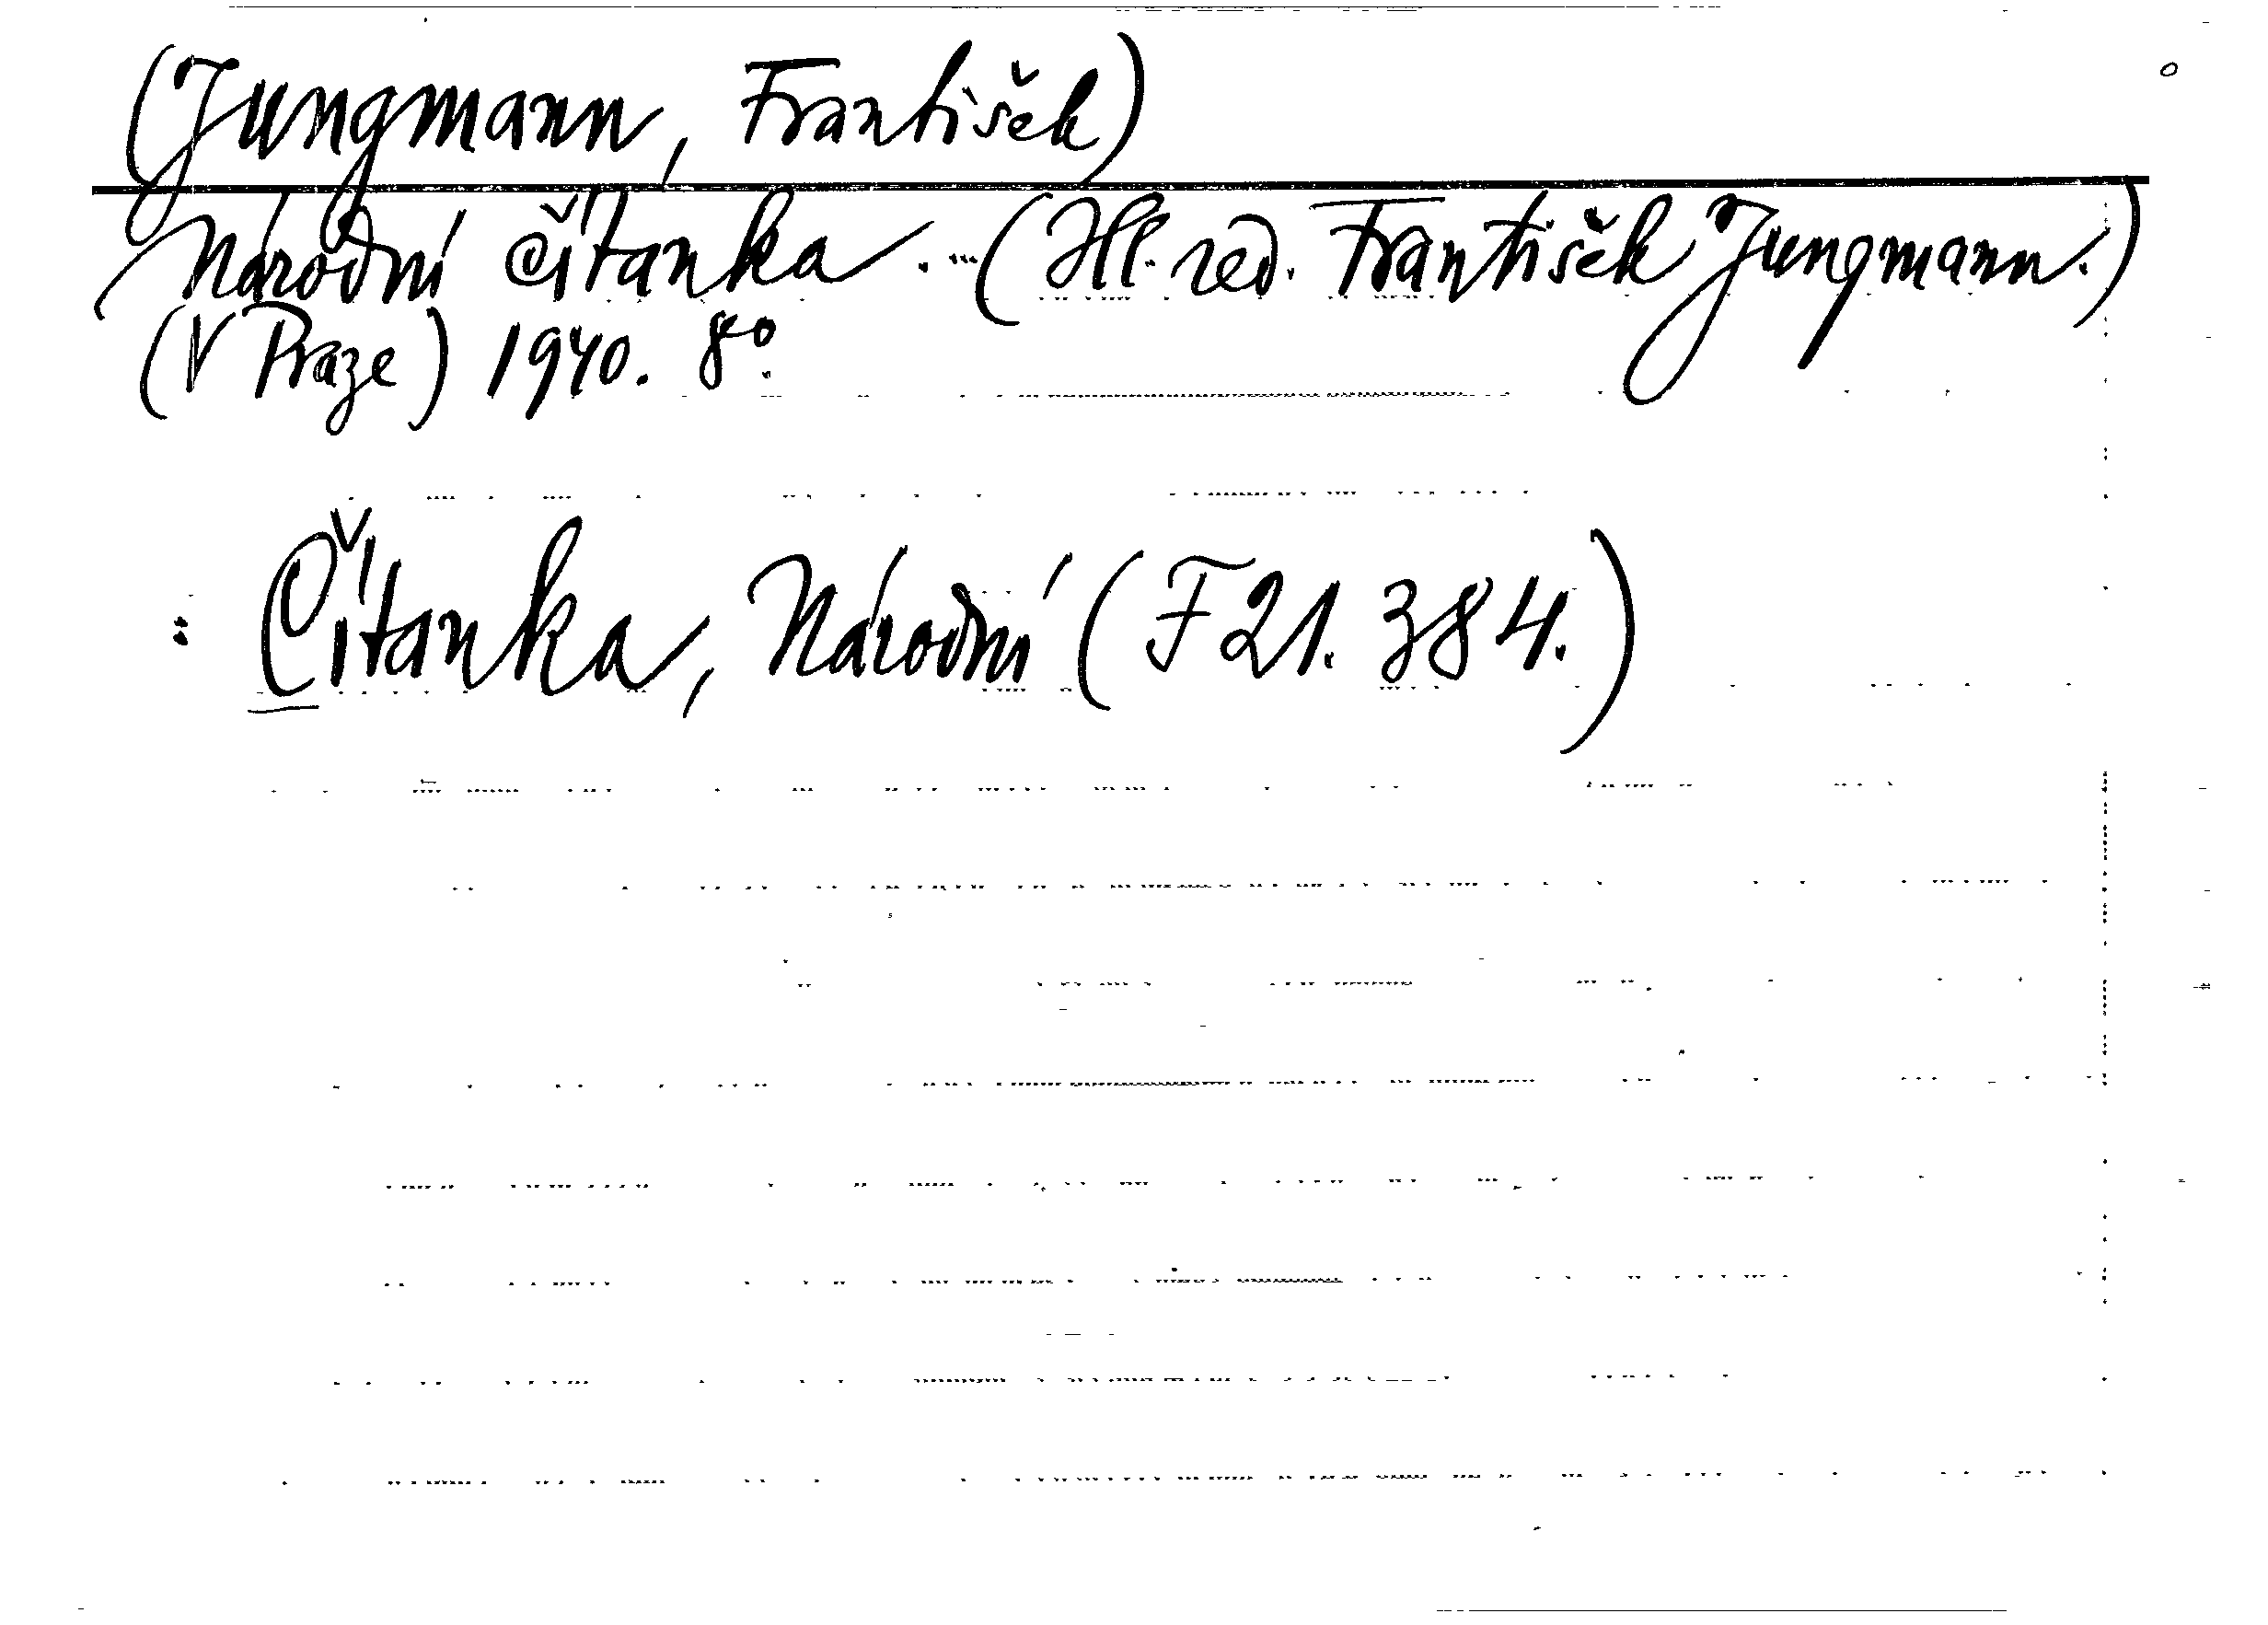 (Jungmann, František)
Národní čítanka. ... (Hl. red. František Jungmann.)
(V Praze) 1940. 8°.
: Čítanka, Národní (F 21. 384.)